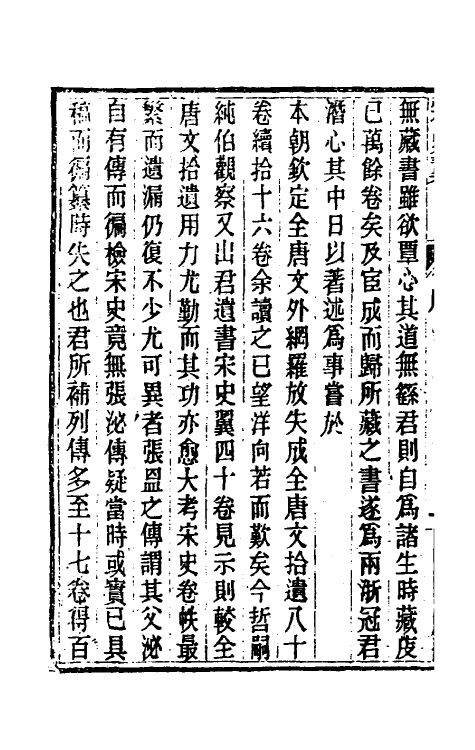 無藏書雖欲覃心其道無繇君則自爲諸生時藏庋
已萬餘卷矣及宦成而歸所藏之書遂爲兩浙冠君
潛心其中日以著述爲事嘗於
本朝欽定全唐文外網羅放失成全唐文拾遺八十
卷續拾十六卷余讀之已望洋向若而歎矣今哲嗣
純伯觀察又出君遺書宋史翼四十卷見示則較全
唐文拾遺用力尤勤而其功亦愈大考宋史卷帙最
繁而遺漏仍復不少尤可異者張溫之傳謂其父泌
自有傳而徧檢宋史竟無張泌傳疑當時或實已具
稿而徧纂時失之也君所補列傳多至十七卷得百